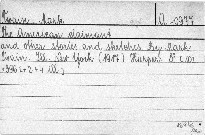 Twain, Mark. A 0977
The American claimant
and other stories and sketches by Mark
Twain. Ill. New York (1917) Harper. 8° C m.
+396+2++ Ill,